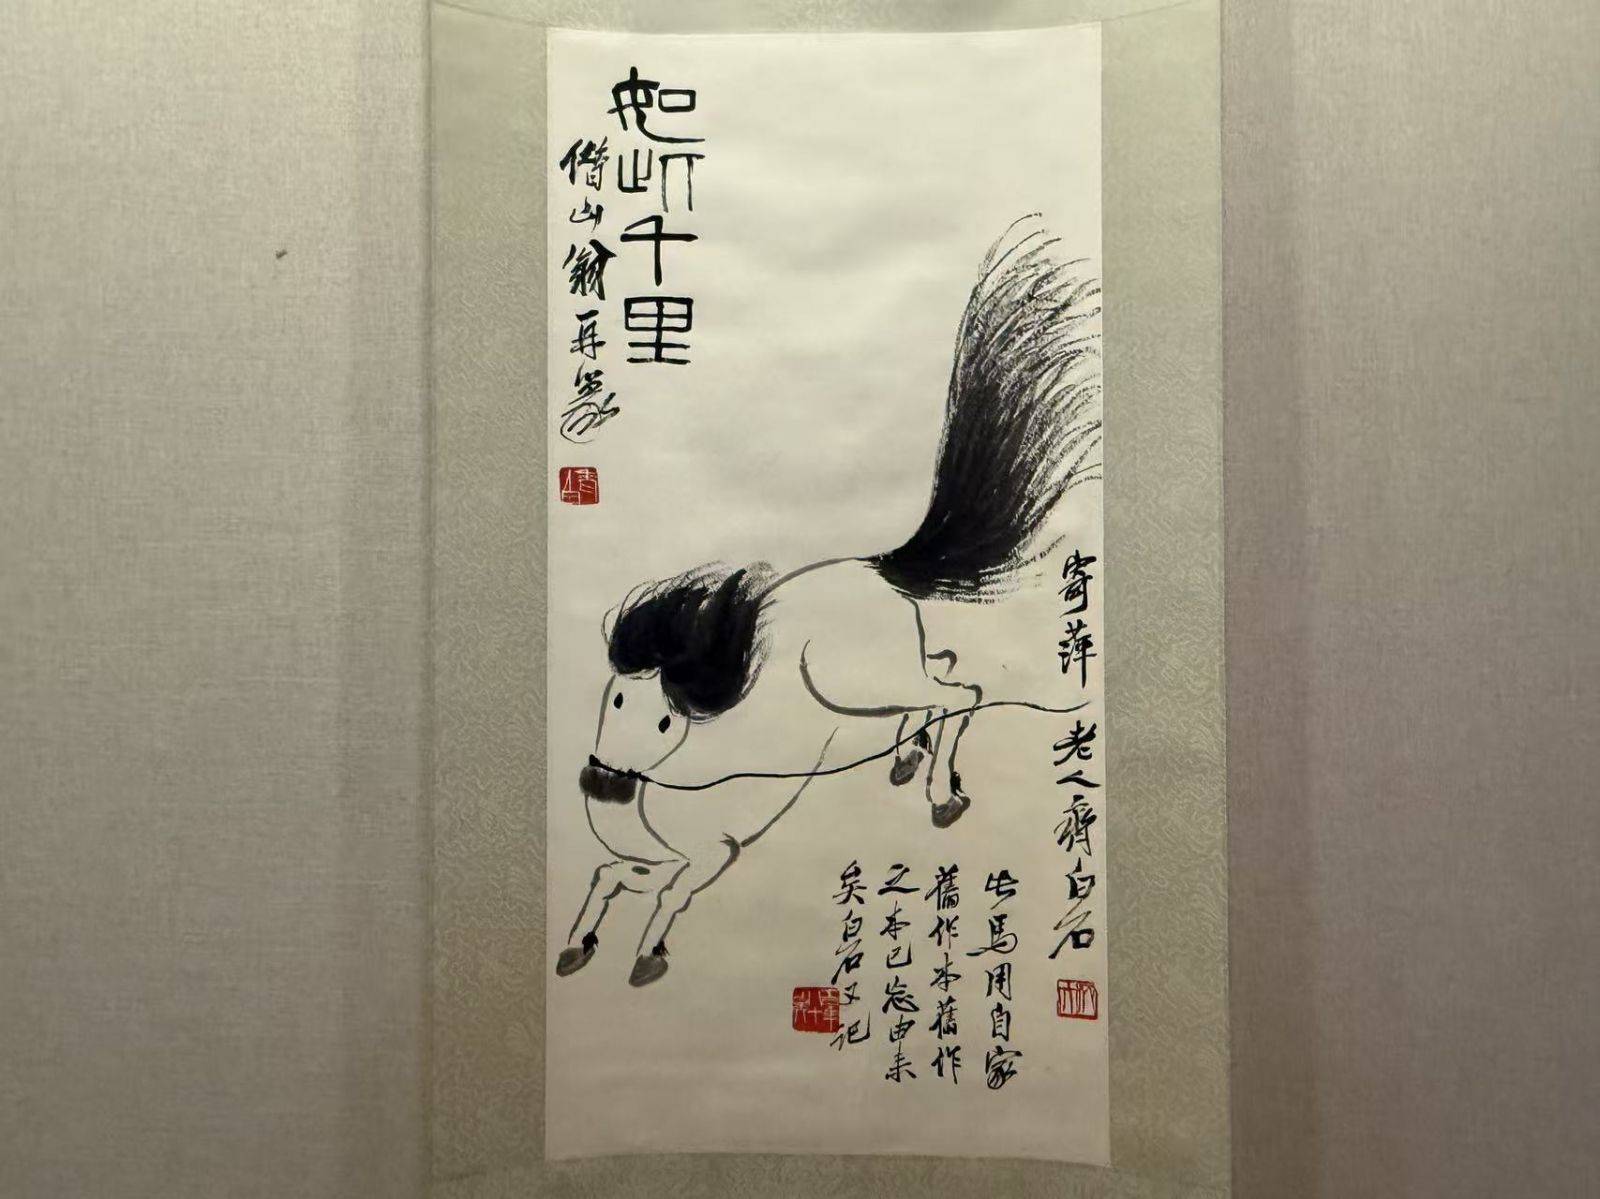 如此千里
借山翁再篆
寄萍老人齊白石
此馬用自家
舊作本舊作
之本已忘由来
矣白石又记